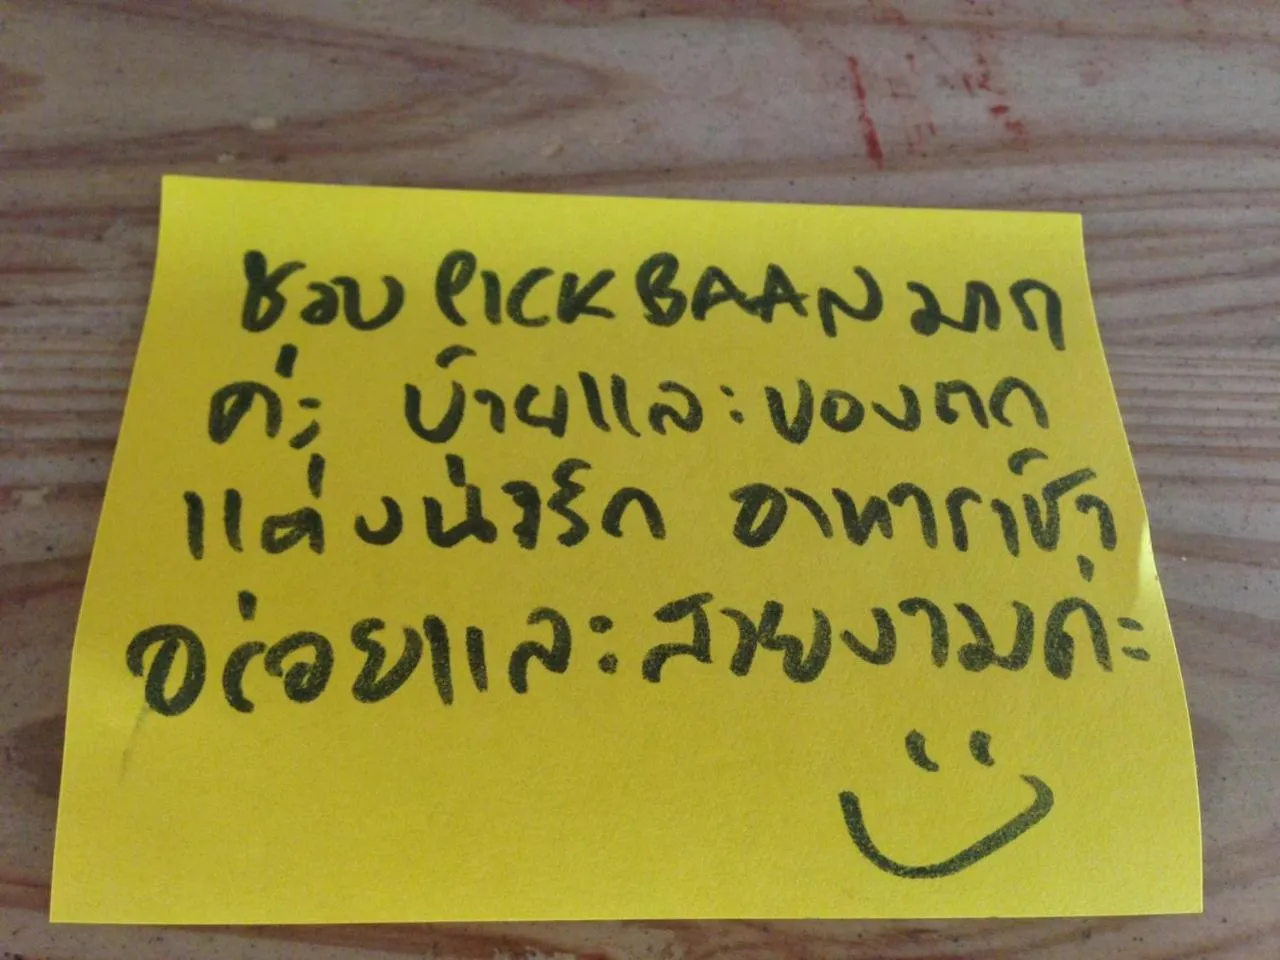 ชอบ PICKBAAN มาก
ค่ะ บ้านและของตก
แต่งน่ารัก อาหารเช้า
อร่อยและสวยงามค่ะ